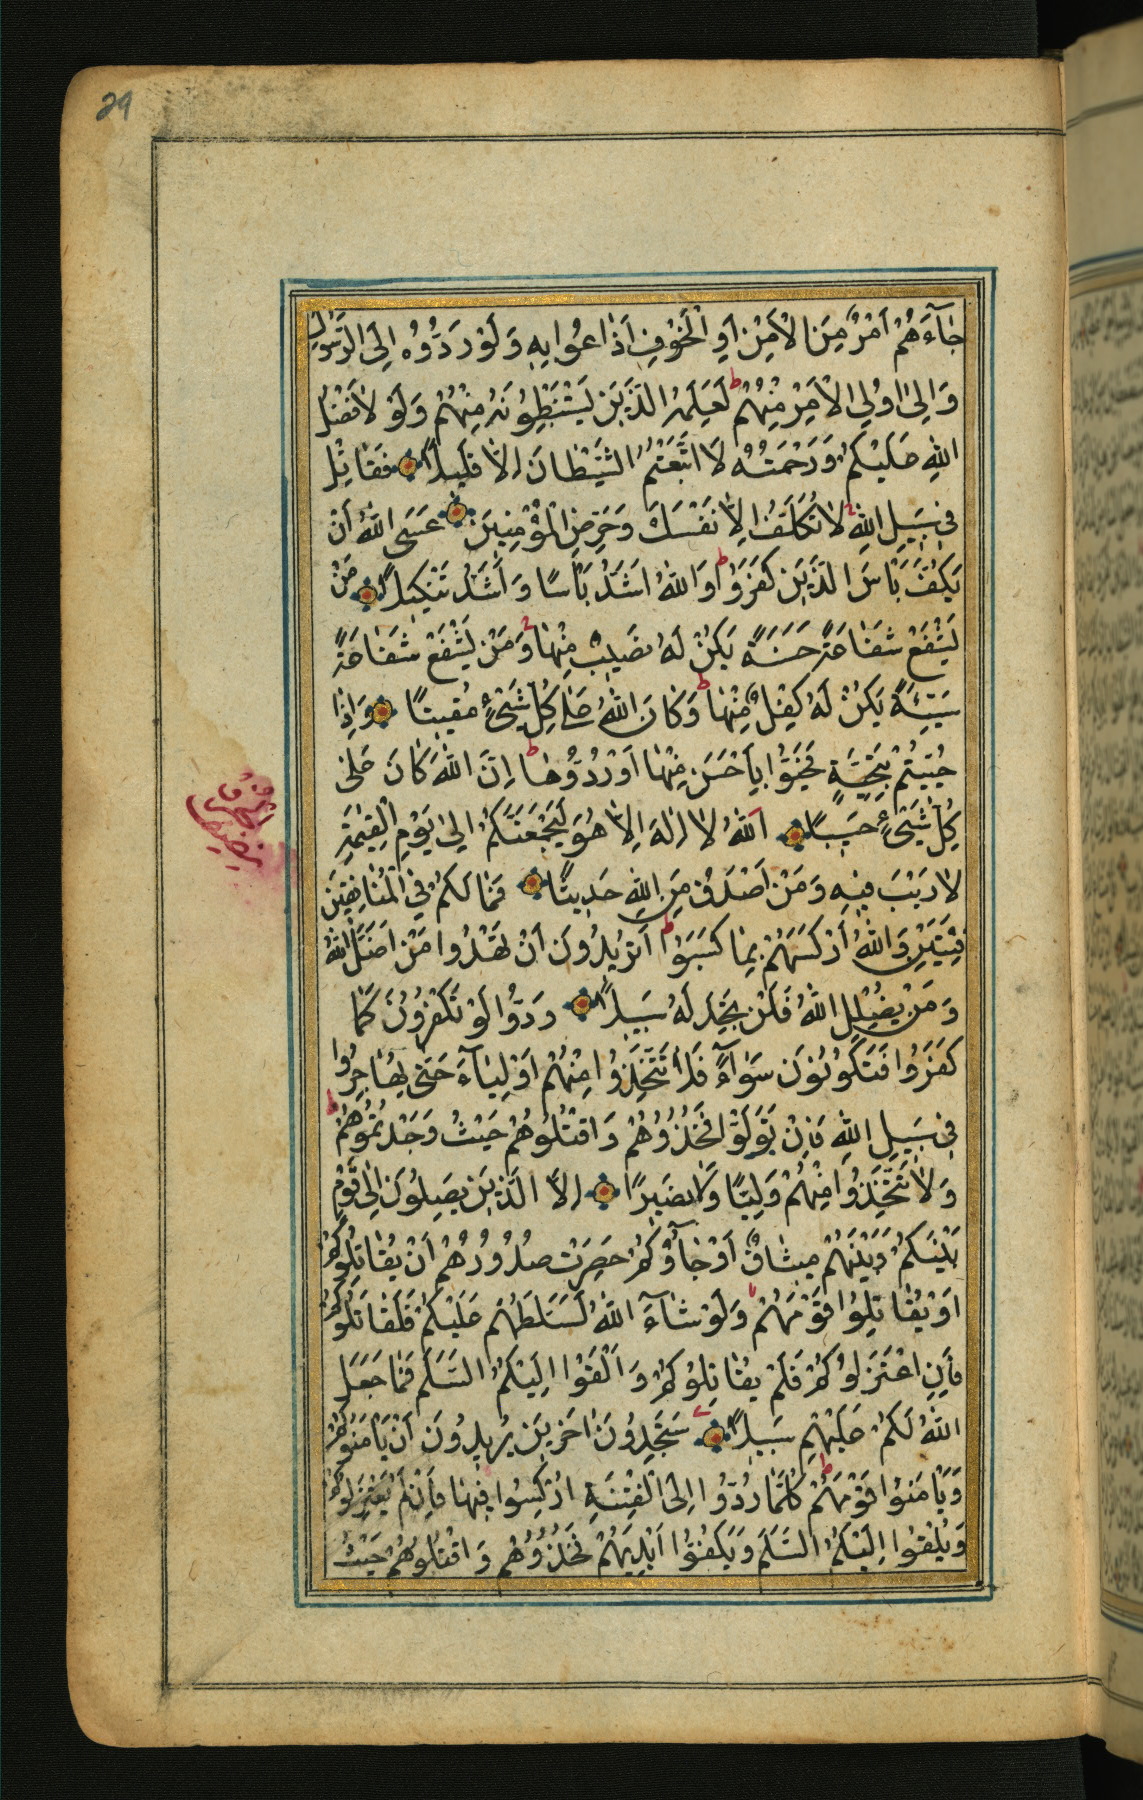 29
جَآءَهُمْ اَمْرٌ مِنَ الْاَمْنِ اَوِ الْخَوْفِ اَذَاعُوا بِهِ وَلَوْ رَدُّوُهُ اِلَى الرَّسُولِ
وَاِلىٰ اوُلِي الْاَمْرِ مِنْهُمْ ط لَعَلِمَهُ الَّذَيِنَ يَسْتَنْبِطِوُنَهُ مِنْهُمْ وَلَوْ لاٰ فَضْلُ
اللهِ عَلَيْكُمْ وَرَحْمَتُهُ لَا اتَّبَعْتُمُ الشَّيْطَانَ اِلاّٰ قَليٖلاً فَقَاتِلْ
فيٖ سَبيٖلِ اللهِ لاٰ تُكَلَّفُ اِلاّٰ نَفْسَكَ وَحَرِّضِ الْمُؤْمِنيٖنَ عَسَى اللهُ اَنْ
يَكُفَّ بَاْسَ الَّذَيٖنَ كَفَرَوُا ط وَاللهُ اَشَدُّ بَاْسًا وَاَشَدُّ تَنْكيٖلاً مَنْ
يَشْفَعْ شَفَاعَةً حَسَنَةً يَكُنْ لَهُ نَصَيٖبٌ مِنْهٰا وَمَنْ يَشْفَعْ شَفَاعَةً
سَيِّئَةً يَكُنْ لَهُ كِفْلٌ مِنْهٰا ط وَكَانَ اللهُ عَلىٰ كُلِّ شَيْءٍ مُقيٖتًا وَاِذٰا
حُيّيٖتُمْ بِتَحِيَّةٍ فَحَيُّوُا بِاَحْسَنَ مِنْهٰا اَوْ رُدُّوُهٰا ط اِنَّ اللهَ كٰانَ عَلىٰ
كُلِّ شَيْءٍ حَسيٖبًا اَللهُ لاٰ اِلٰهَ اِلاّٰ هُوَ لَيَجْمَعَنَّكُمْ اِلىٰ يَوْمِ الْقِيٰمَةِ
لاٰ رَيْبَ فيٖهِ وَمَنْ اَصْدَقُ مِنَ اللهِ حَديٖثًا فَمٰا لَكُمْ فِي الْمُنٰافِقيٖنَ
فِئَتَيْنِ وَاللهُ اَرْكَسَهُمْ بِمٰا كَسَبَوُا ط اَتُريٖدُونَ اَنْ تَهْدُوا مَنْ اَضَلَّ اللهُ
وَمَنْ يُضْلِلِ اللهُ فَلَنْ تَجِدَ لَهُ سَبيٖلاً وَدُّوا لَوْ تَكْفُرُونَ كَمٰا
كَفَرَوُا فَتَكُوُنُوُنَ سَوٰاءً فَلاٰ تَتَّخِذُوا مِنْهُمْ اَوْلِيٰآءَ حَتّىٰ يُهٰاجِرُوا
فيٖ سَبيٖلِ اللهِ فَاِنْ تَوَلَّوْا فَخُذُوُهُمْ وَاقْتُلُوُهُمْ حَيْثُ وَجَدْتُمُوُهُمْ ط
وَلاٰ تَتَّخِذُوا مِنْهُمْ وَلِيًّا وَلاٰ نَصيٖرًا اِلاَّ الَّذيٖنَ يَصِلُونَ اِلىٰ قَوْمٍ
بَيْنَكُمْ وَبَيْنَهُمْ ميٖثٰاقٌ اَوْ جٰاؤُكُمْ حَصِرَتْ صُدُورُهُمْ اَنْ يُقٰاتِلُوكُمْ
اَوْ يُقٰاتِلُوا قَوْمَهُمْ ط وَلَوْ شٰآءَ اللهُ لَسَلَّطَهُمْ عَلَيْكُمْ فَلَقٰاتَلُوكُمْ
فَاِنِ اعْتَزَلُوُكُمْ فَلَمْ يُقٰاتِلُوكُمْ وَاَلْقَوُا اِلَيْكُمُ السَّلَمَ فَمٰا جَعَلَ
اللهُ لَكُمْ عَلَيْهِمْ سَبيٖلاً سَتَجِدُونَ اٰخَريٖنَ يُريٖدُونَ اَنْ يَاْمَنُوكُمْ
وَيَاْمَنُوا قَوْمَهُمْ ط كُلَّمٰا رُدُّوا اِلَى الْفِتْنَةِ اُرْكِسُوا فيٖهٰا فَاِنْ لَمْ يَعْتَزِلُوكُمْ
وَيُلْقُوا اِلَيْكُمُ السَّلَمَ وَيَكُفُّوُا اَيْدِيَهُمْ فَخُذُوُهُمْ وَاقْتُلُوهُمْ حَيْثُ